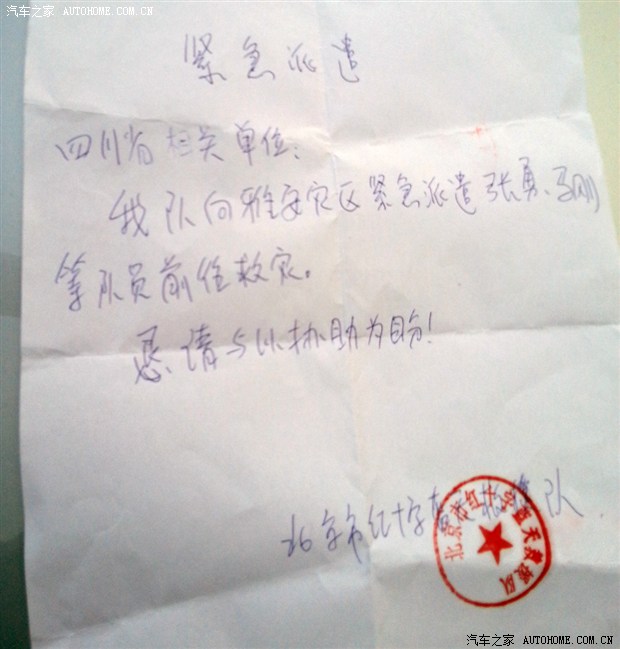 汽车之家 AUTOHOME.COM.CN
紧急派遣
四川省相关单位：
我队向雅安灾区紧急派遣张勇、马刚
等队员前往救灾。
恳请与以协助为盼！
北京市红十字蓝天救援队
北京市红十字蓝天救援队
汽车之家 AUTOHOME.COM.CN